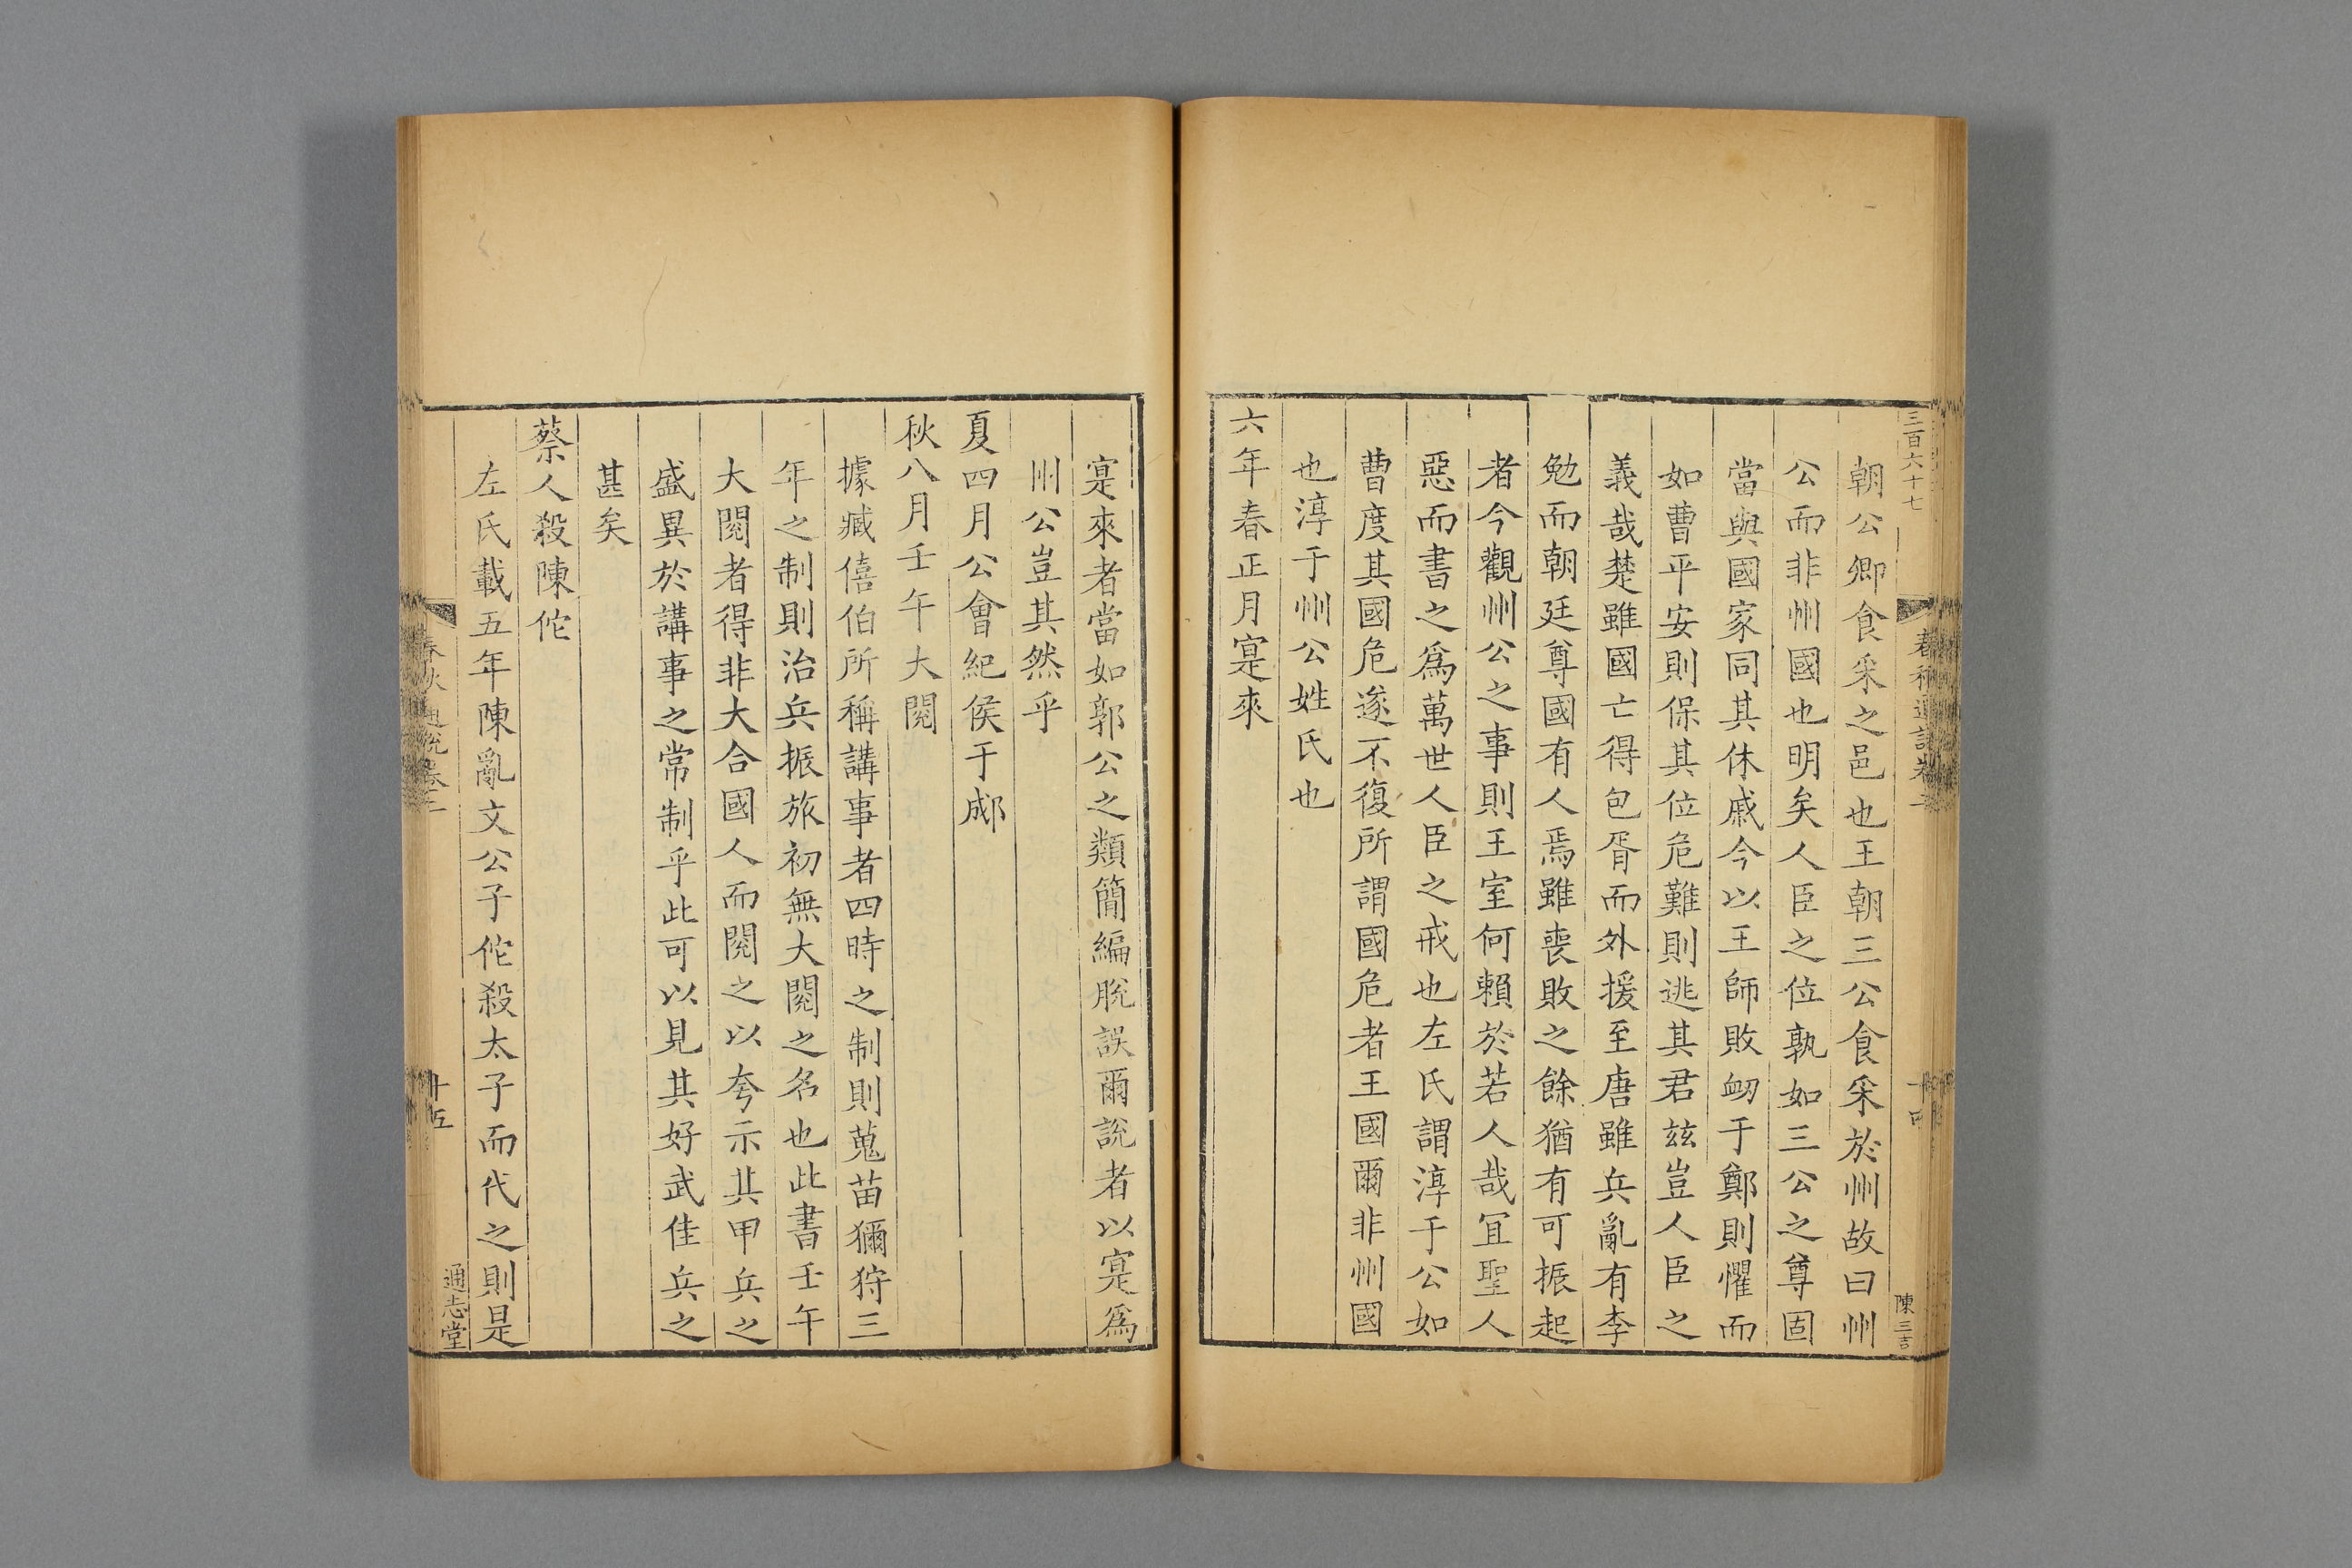 三百六十七
春秋通說卷二
十四
陳三吉
朝公卿食采之邑也王朝三公食采於州故曰州
公而非州國也明矣人臣之位孰如三公之尊固
當與國家同其休戚今以王師敗衂于鄭則懼而
如曹平安則保其位危難則逃其君玆豈人臣之
義哉楚雖國亡得包胥而外援至唐雖兵亂有李
勉而朝廷尊國有人焉雖喪敗之餘猶有可振起
者今觀州公之事則王室何賴於若人哉冝聖人
惡而書之爲萬世人臣之戒也左氏謂淳于公如
曹度其國危遂不復所謂國危者王國爾非州國
也淳于州公姓氏也
六年春正月寔來
寔來者當如郭公之類簡編脫誤爾說者以寔爲
州公豈其然乎
夏四月公會紀侯于郕
秋八月壬午大閱
據臧僖伯所稱講事者四時之制則蒐苗獮狩三
年之制則治兵振旅初無大閱之名也此書壬午
大閱者得非大合國人而閱之以夸示其甲兵之
盛異於講事之常制乎此可以見其好武佳兵之
甚矣
蔡人殺陳佗
左氏載五年陳亂文公子佗殺太子而代之則是
春秋通說卷二
十五
通志堂